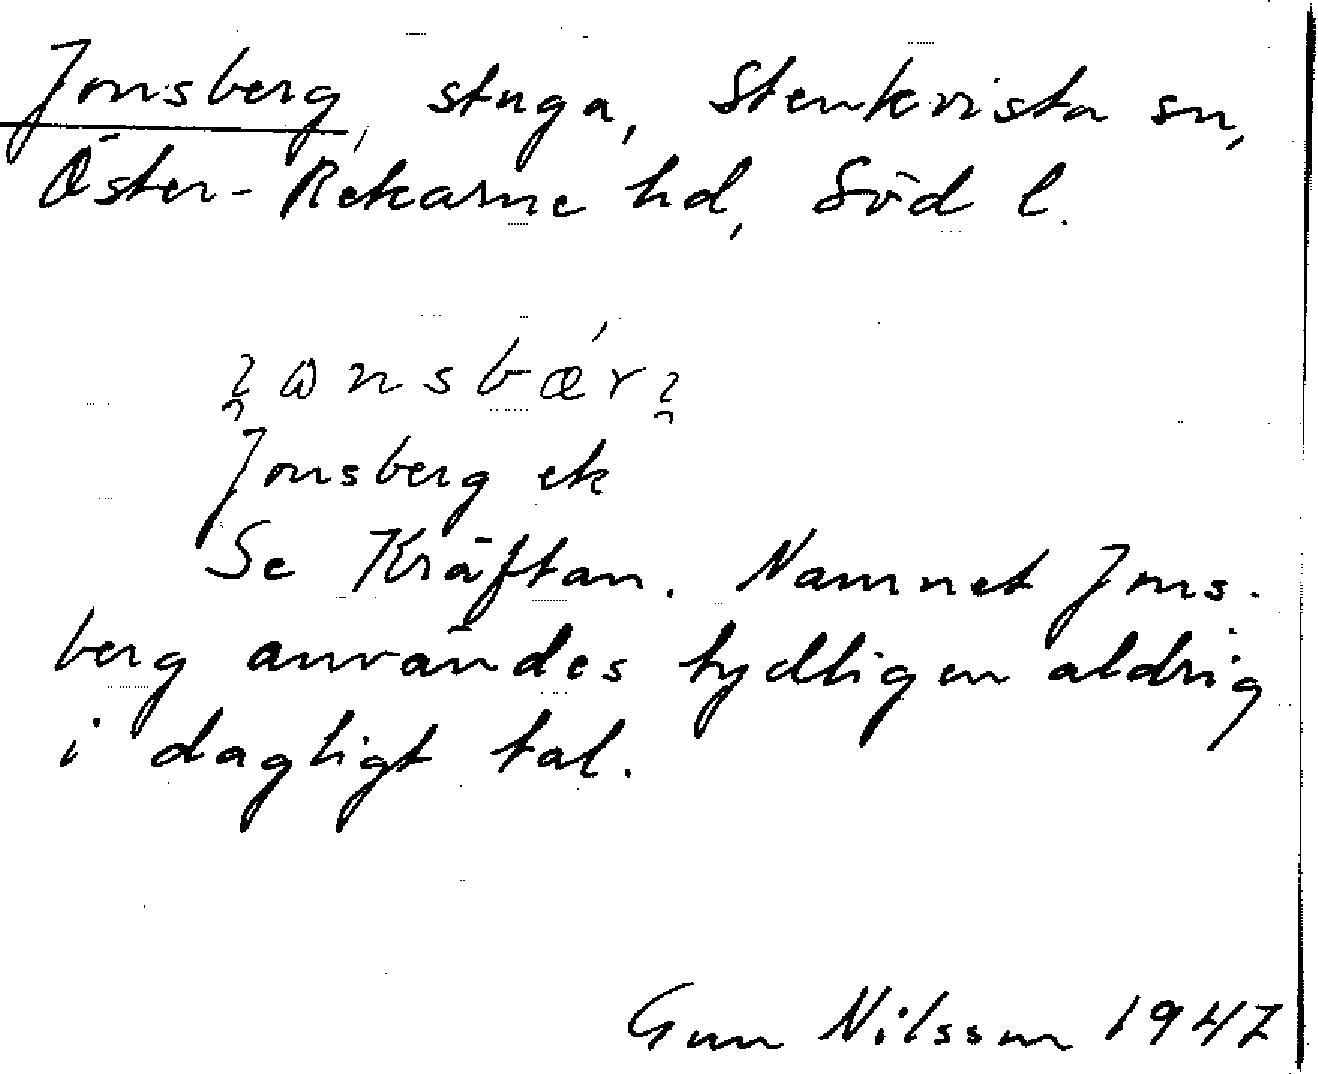 Jonsberg, stuga, Stenkvista sn,
Öster-Rekarne hd, Söd l.
Jonsberg ek
Se Kräftan. Namnet Jons-
berg användes tydligen aldrig
i dagligt tal.
Gun Nilsson 1947